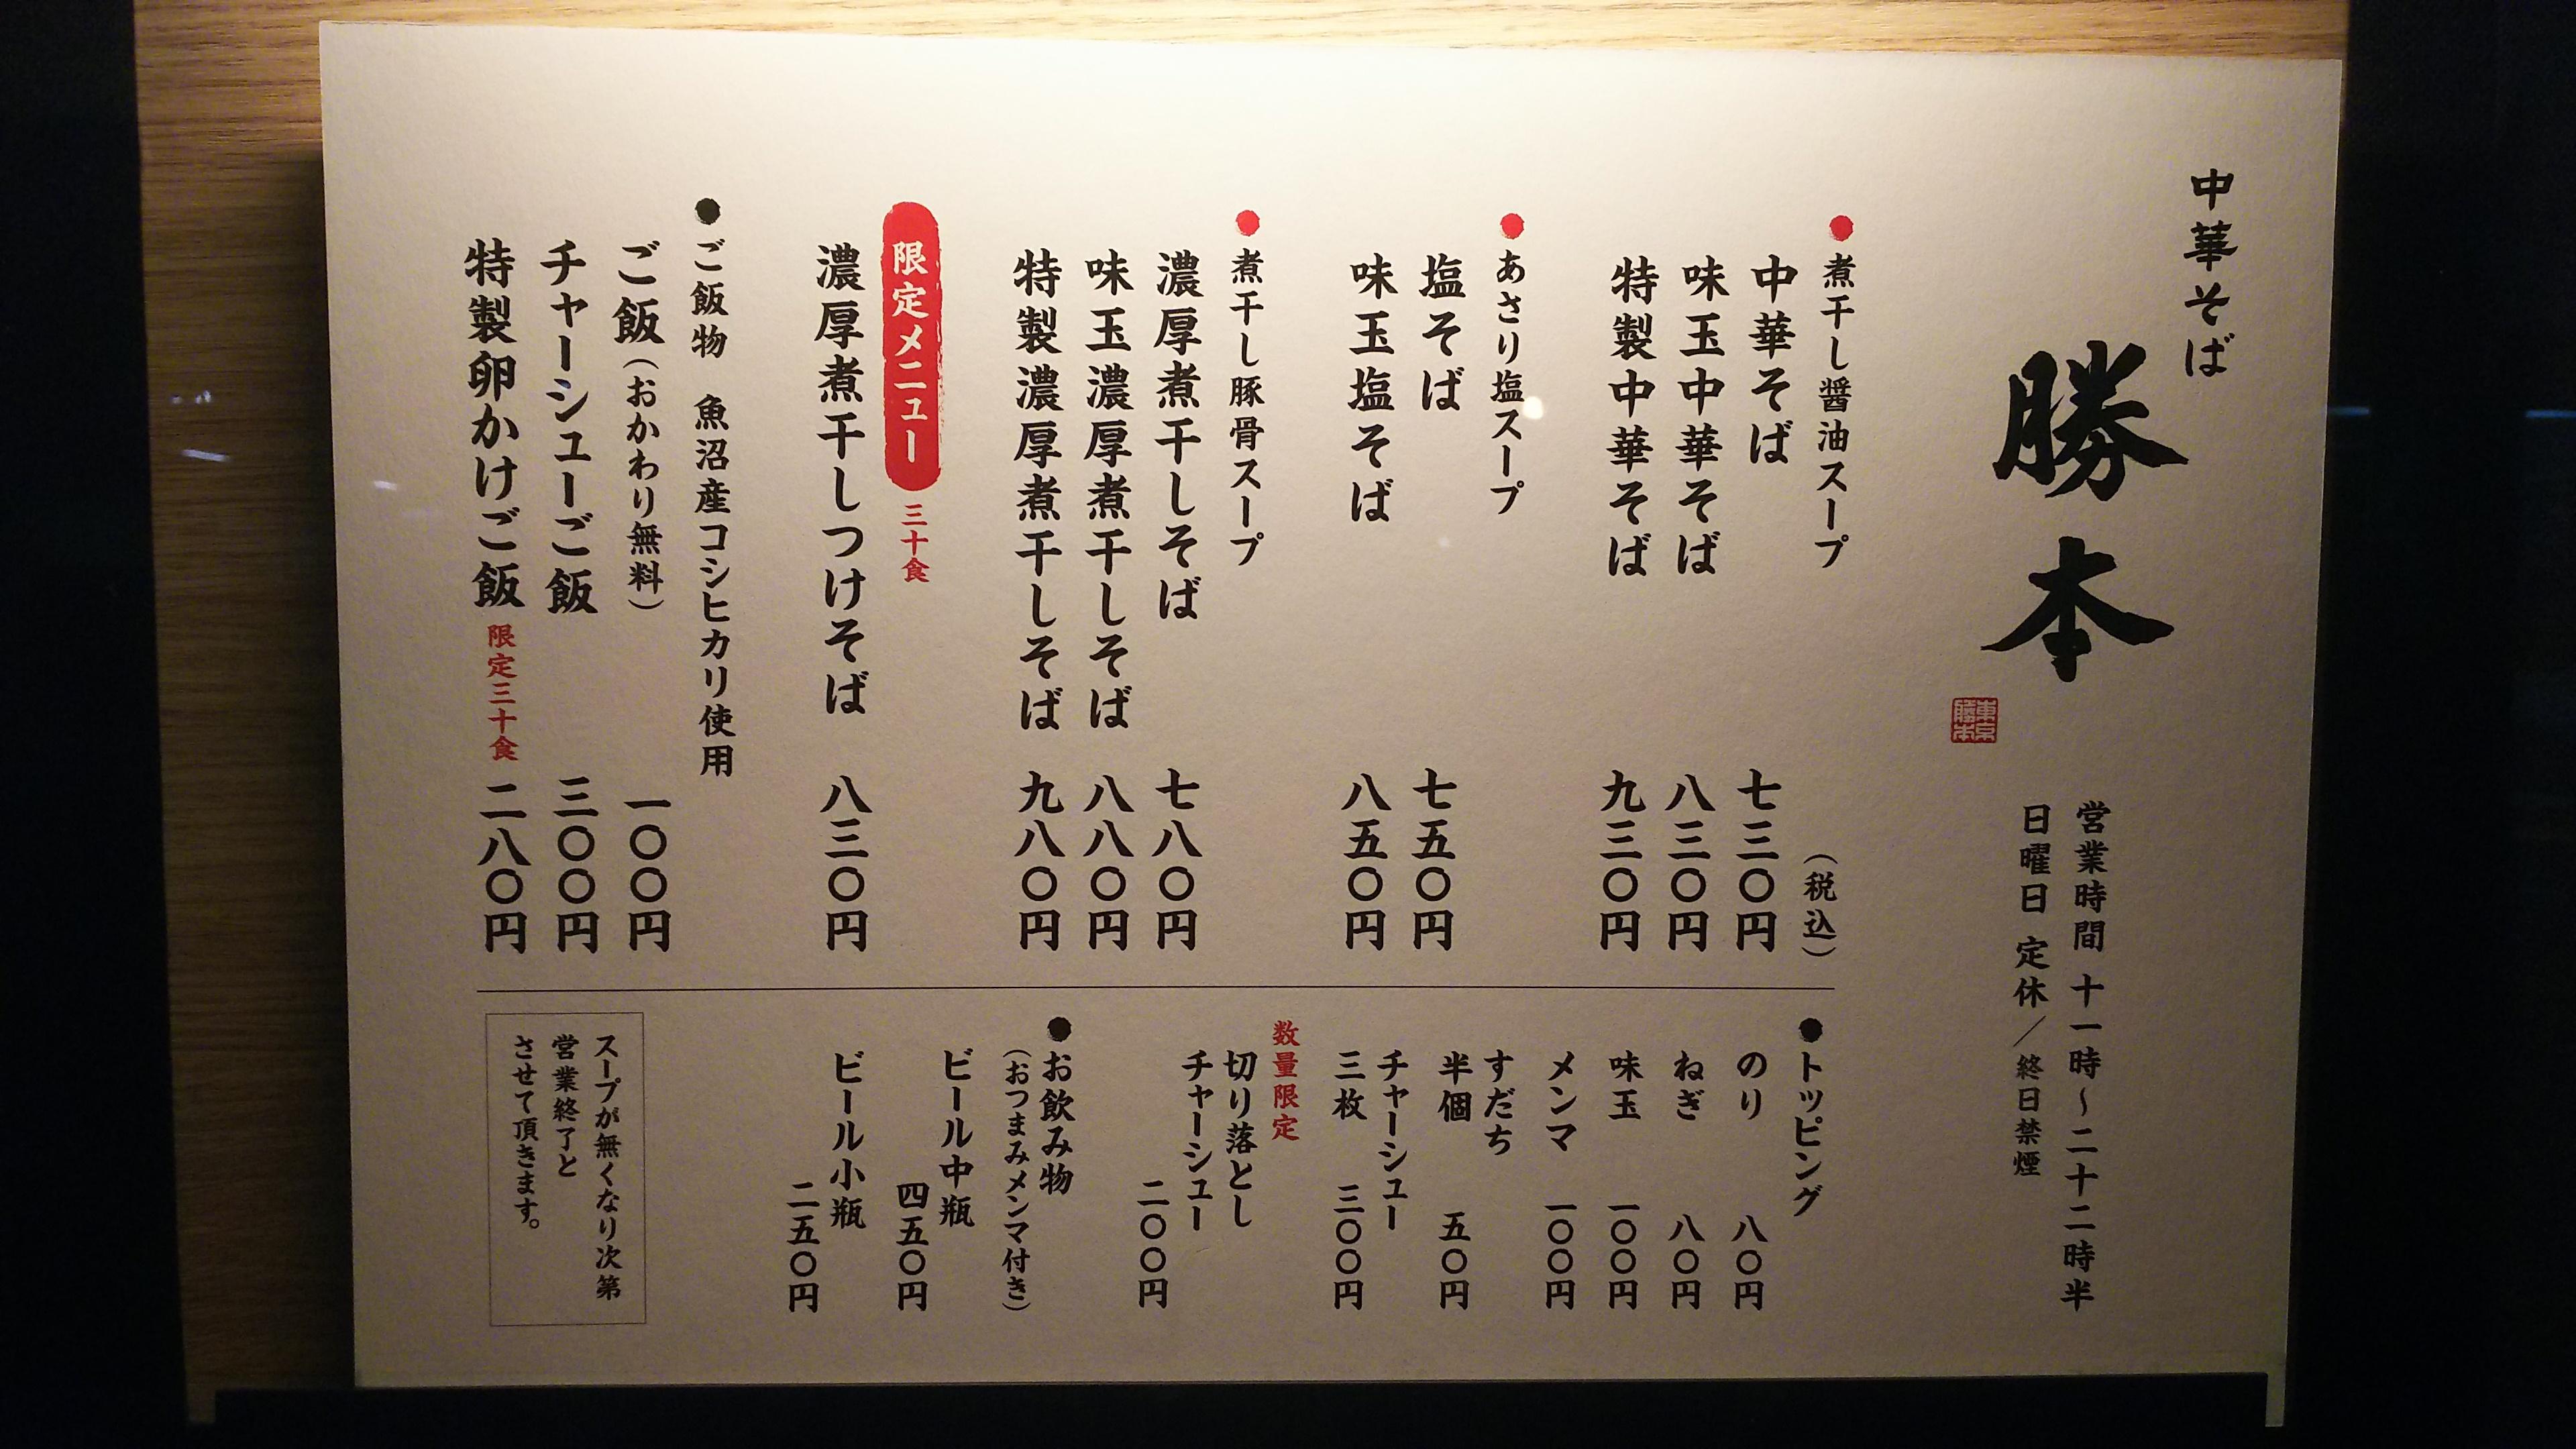 中華そば
勝本
東京
勝本
営業時間 十一時〜二十二時半
日曜日 定休／終日禁煙
（税込）
●煮干し醤油スープ
中華そば 七三〇円
味玉中華そば 八三〇円
特製中華そば 九三〇円
●あさり塩スープ
塩そば 七五〇円
味玉塩そば 八五〇円
●煮干し豚骨スープ
濃厚煮干しそば 七八〇円
味玉濃厚煮干しそば 八八〇円
特製濃厚煮干しそば 九八〇円
限定メニュー 三十食
濃厚煮干しつけそば 八三〇円
●ご飯物 魚沼産コシヒカリ使用
ご飯（おかわり無料） 一〇〇円
チャーシューご飯 三〇〇円
特製卵かけご飯 限定三十食 二八〇円
●トッピング
のり 八〇円
ねぎ 八〇円
味玉 一〇〇円
メンマ 一〇〇円
すだち
半個 五〇円
チャーシュー
三枚 三〇〇円
数量限定
切り落とし
チャーシュー
二〇〇円
●お飲み物
（おつまみメンマ付き）
ビール中瓶
四五〇円
ビール小瓶
二五〇円
スープが無くなり次第
営業終了と
させて頂きます。